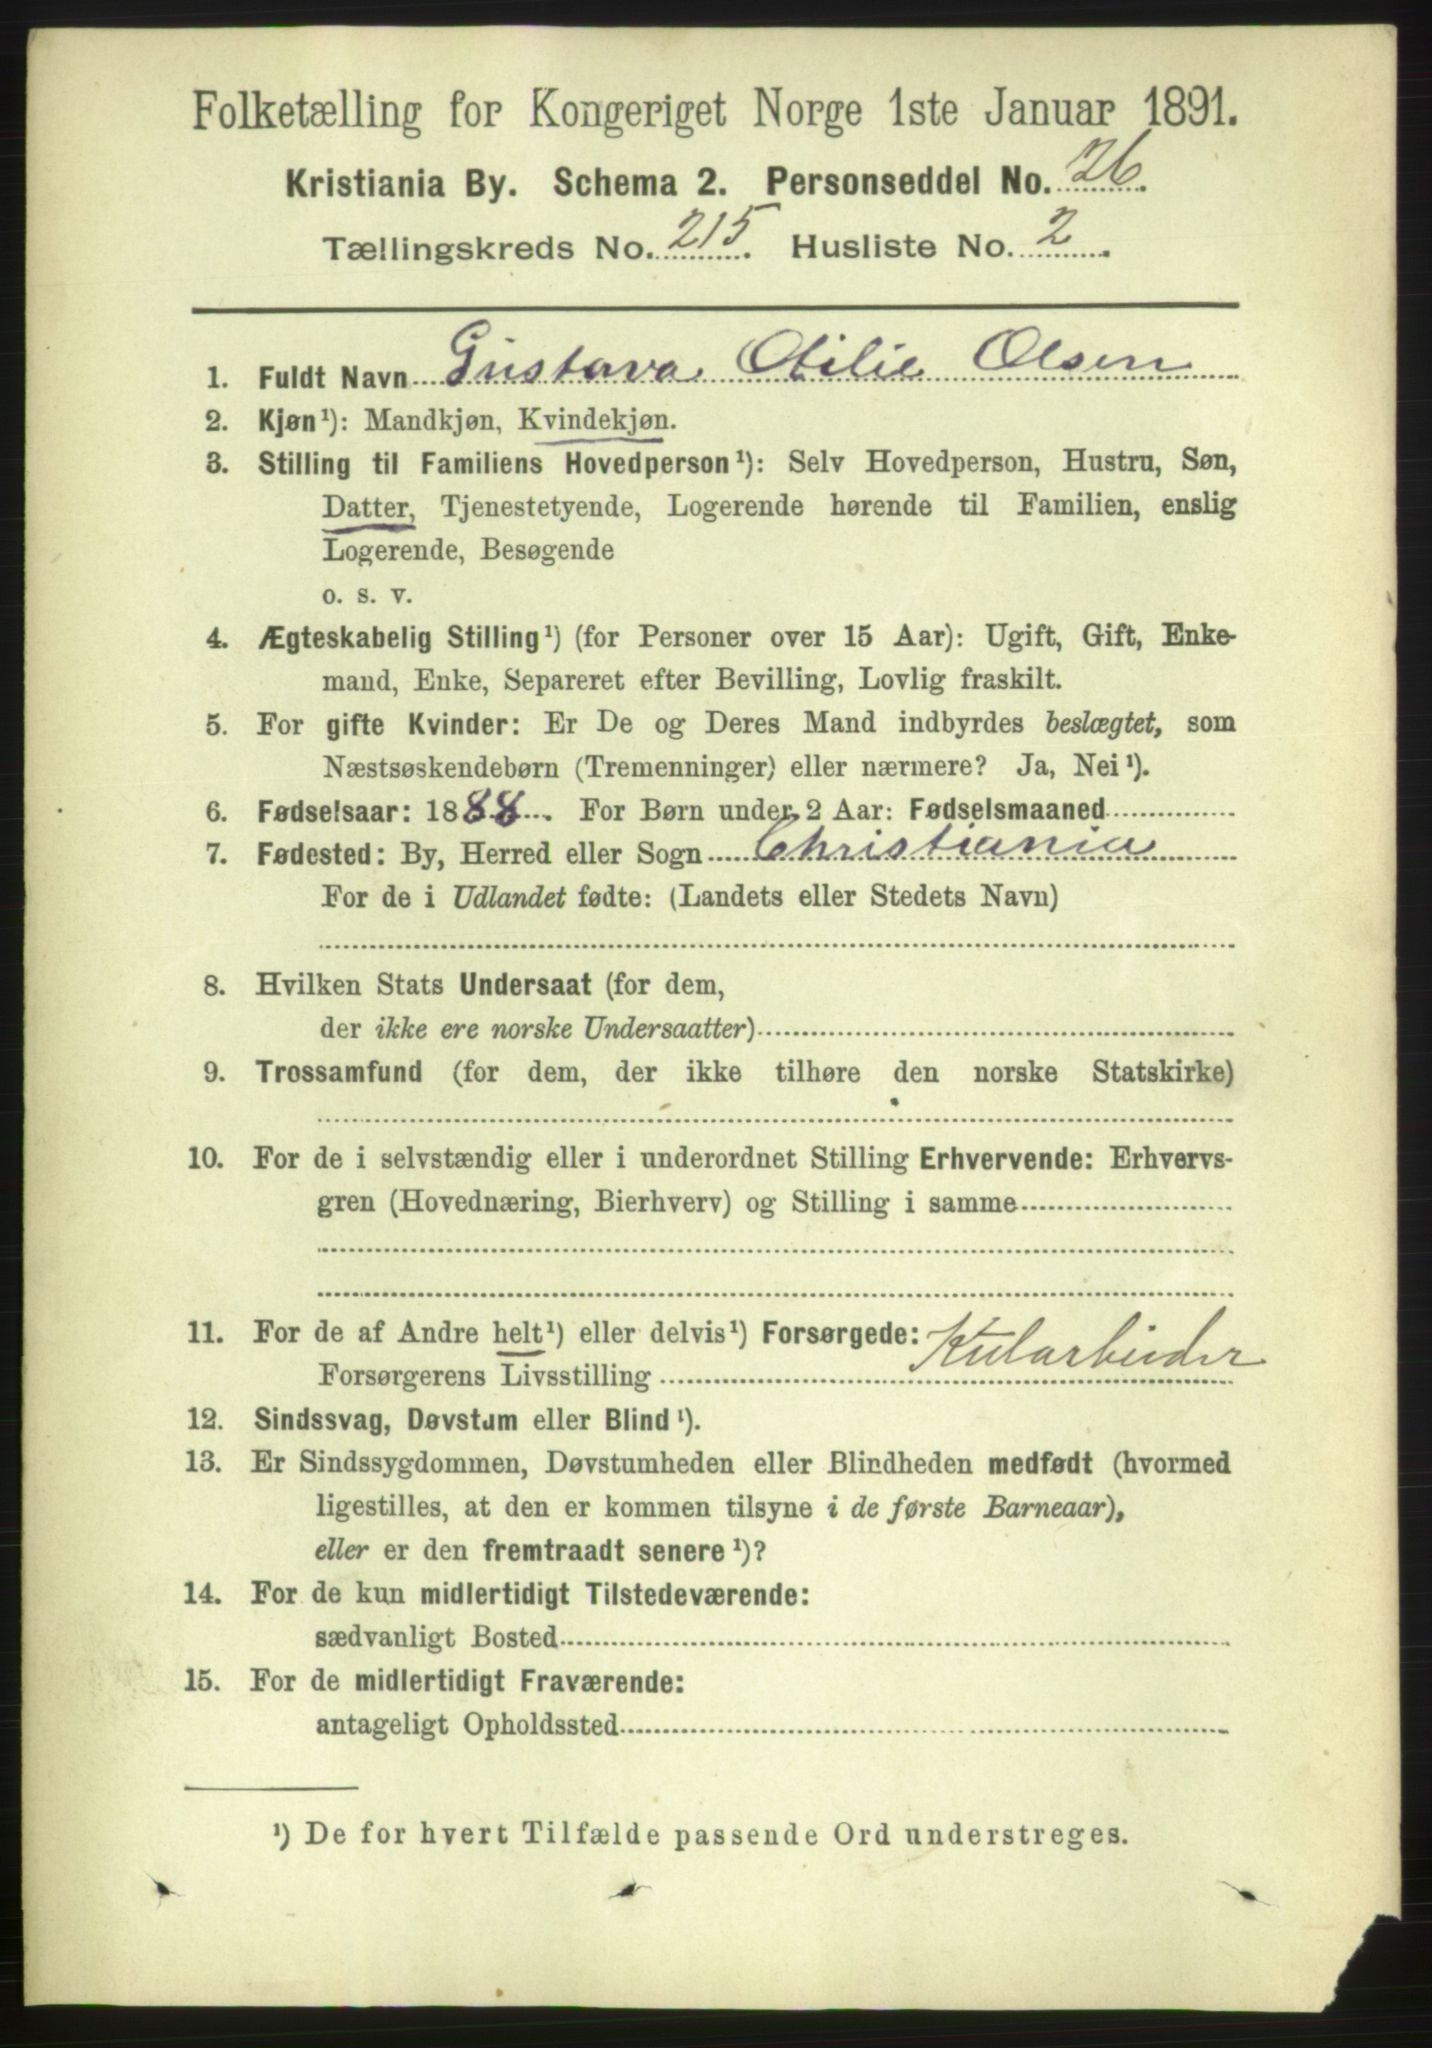 Folketælling for Kongeriget Norge 1ste Januar 1891.
Kristiania By. Schema 2. Personseddel No. 26.
Tællingskreds No. 215. Husliste No. 2.
1. Fuldt Navn Gustava Otilie Olsen
2. Kjøn¹): Mandkjøn, Kvindekjøn.
3. Stilling til Familiens Hovedperson¹): Selv Hovedperson, Hustru, Søn,
Datter, Tjenestetyende, Logerende hørende til Familien, enslig
Logerende, Besøgende
o. s. v.
4. Ægteskabelig Stilling¹) (for Personer over 15 Aar): Ugift, Gift, Enke-
mand, Enke, Separeret efter Bevilling, Lovlig fraskilt.
5. For gifte Kvinder: Er De og Deres Mand indbyrdes beslægtet, som
Næstsøskendebørn (Tremenninger) eller nærmere? Ja, Nei¹).
6. Fødselsaar: 1888. For Børn under 2 Aar: Fødselsmaaned
7. Fødested: By, Herred eller Sogn Christiania
For de i Udlandet fødte: (Landets eller Stedets Navn)
8. Hvilken Stats Undersaat (for dem,
der ikke ere norske Undersaatter)
9. Trossamfund (for dem, der ikke tilhøre den norske Statskirke)
10. For de i selvstændig eller i underordnet Stilling Erhvervende: Erhvervs-
gren (Hovednæring, Bierhverv) og Stilling i samme
11. For de af Andre helt¹) eller delvis¹) Forsørgede:
Forsørgerens Livsstilling Kularbeider
12. Sindssvag, Døvstum eller Blind¹).
13. Er Sindssygdommen, Døvstumheden eller Blindheden medfødt (hvormed
ligestilles, at den er kommen tilsyne i de første Barneaar),
eller er den fremtraadt senere¹)?
14. For de kun midlertidigt Tilstedeværende:
sædvanligt Bosted
15. For de midlertidigt Fraværende:
antageligt Opholdssted
¹) De for hvert Tilfælde passende Ord understreges.